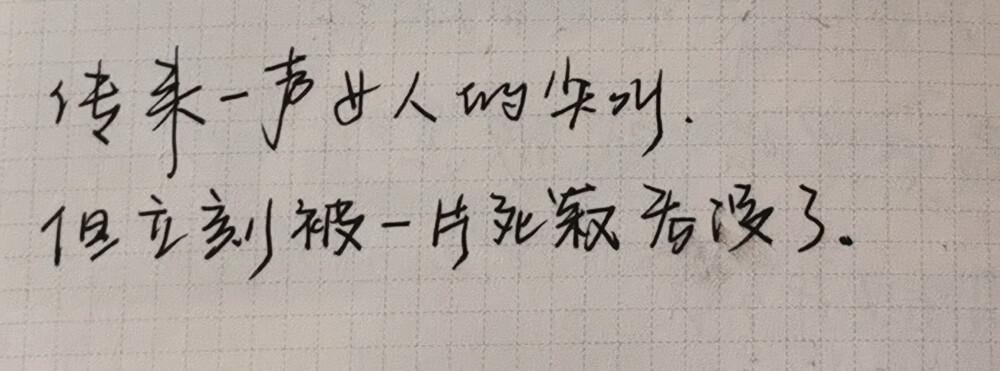 传来一声女人的尖叫.
但立刻被一片死寂吞没了。